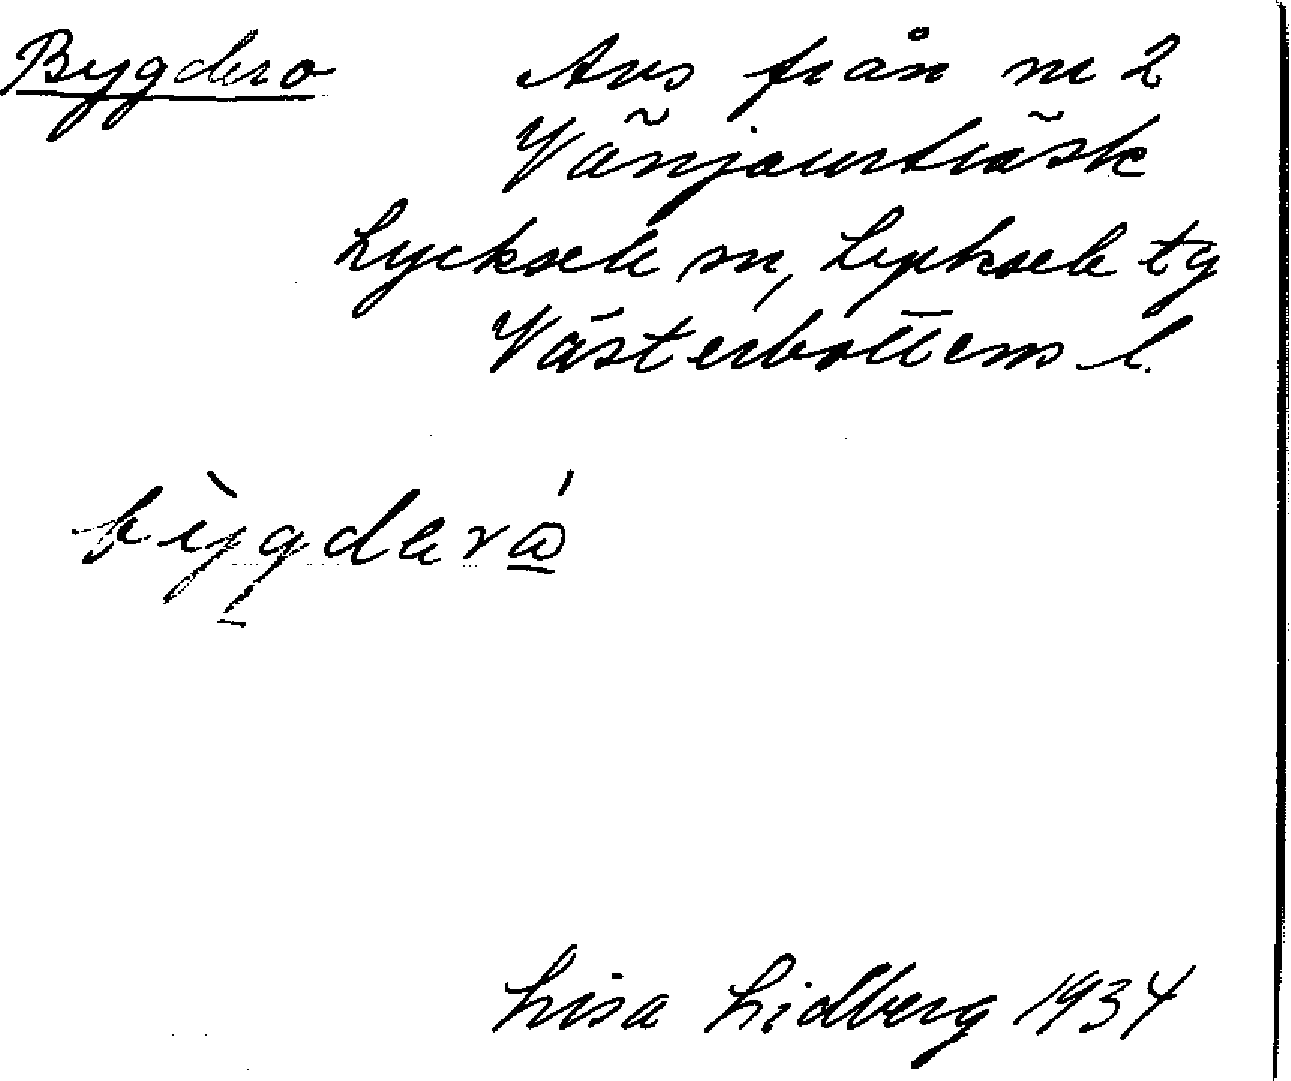 Bygdero
Avs från nr 2
Vänjaurträsk
Lycksele sn, Lycksele tg
Västerbottens l.
bỳgderá
Lisa Lidberg 1934